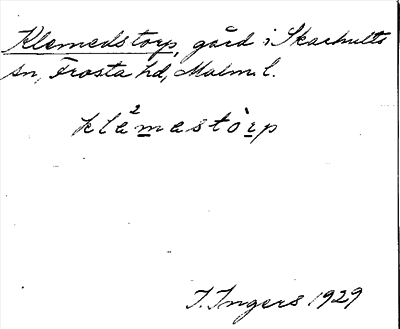 Klemedstorp, gård i Skarhults
sn, Frosta hd, Malm. l.
klè²mastòrp
I. Ingers 1929